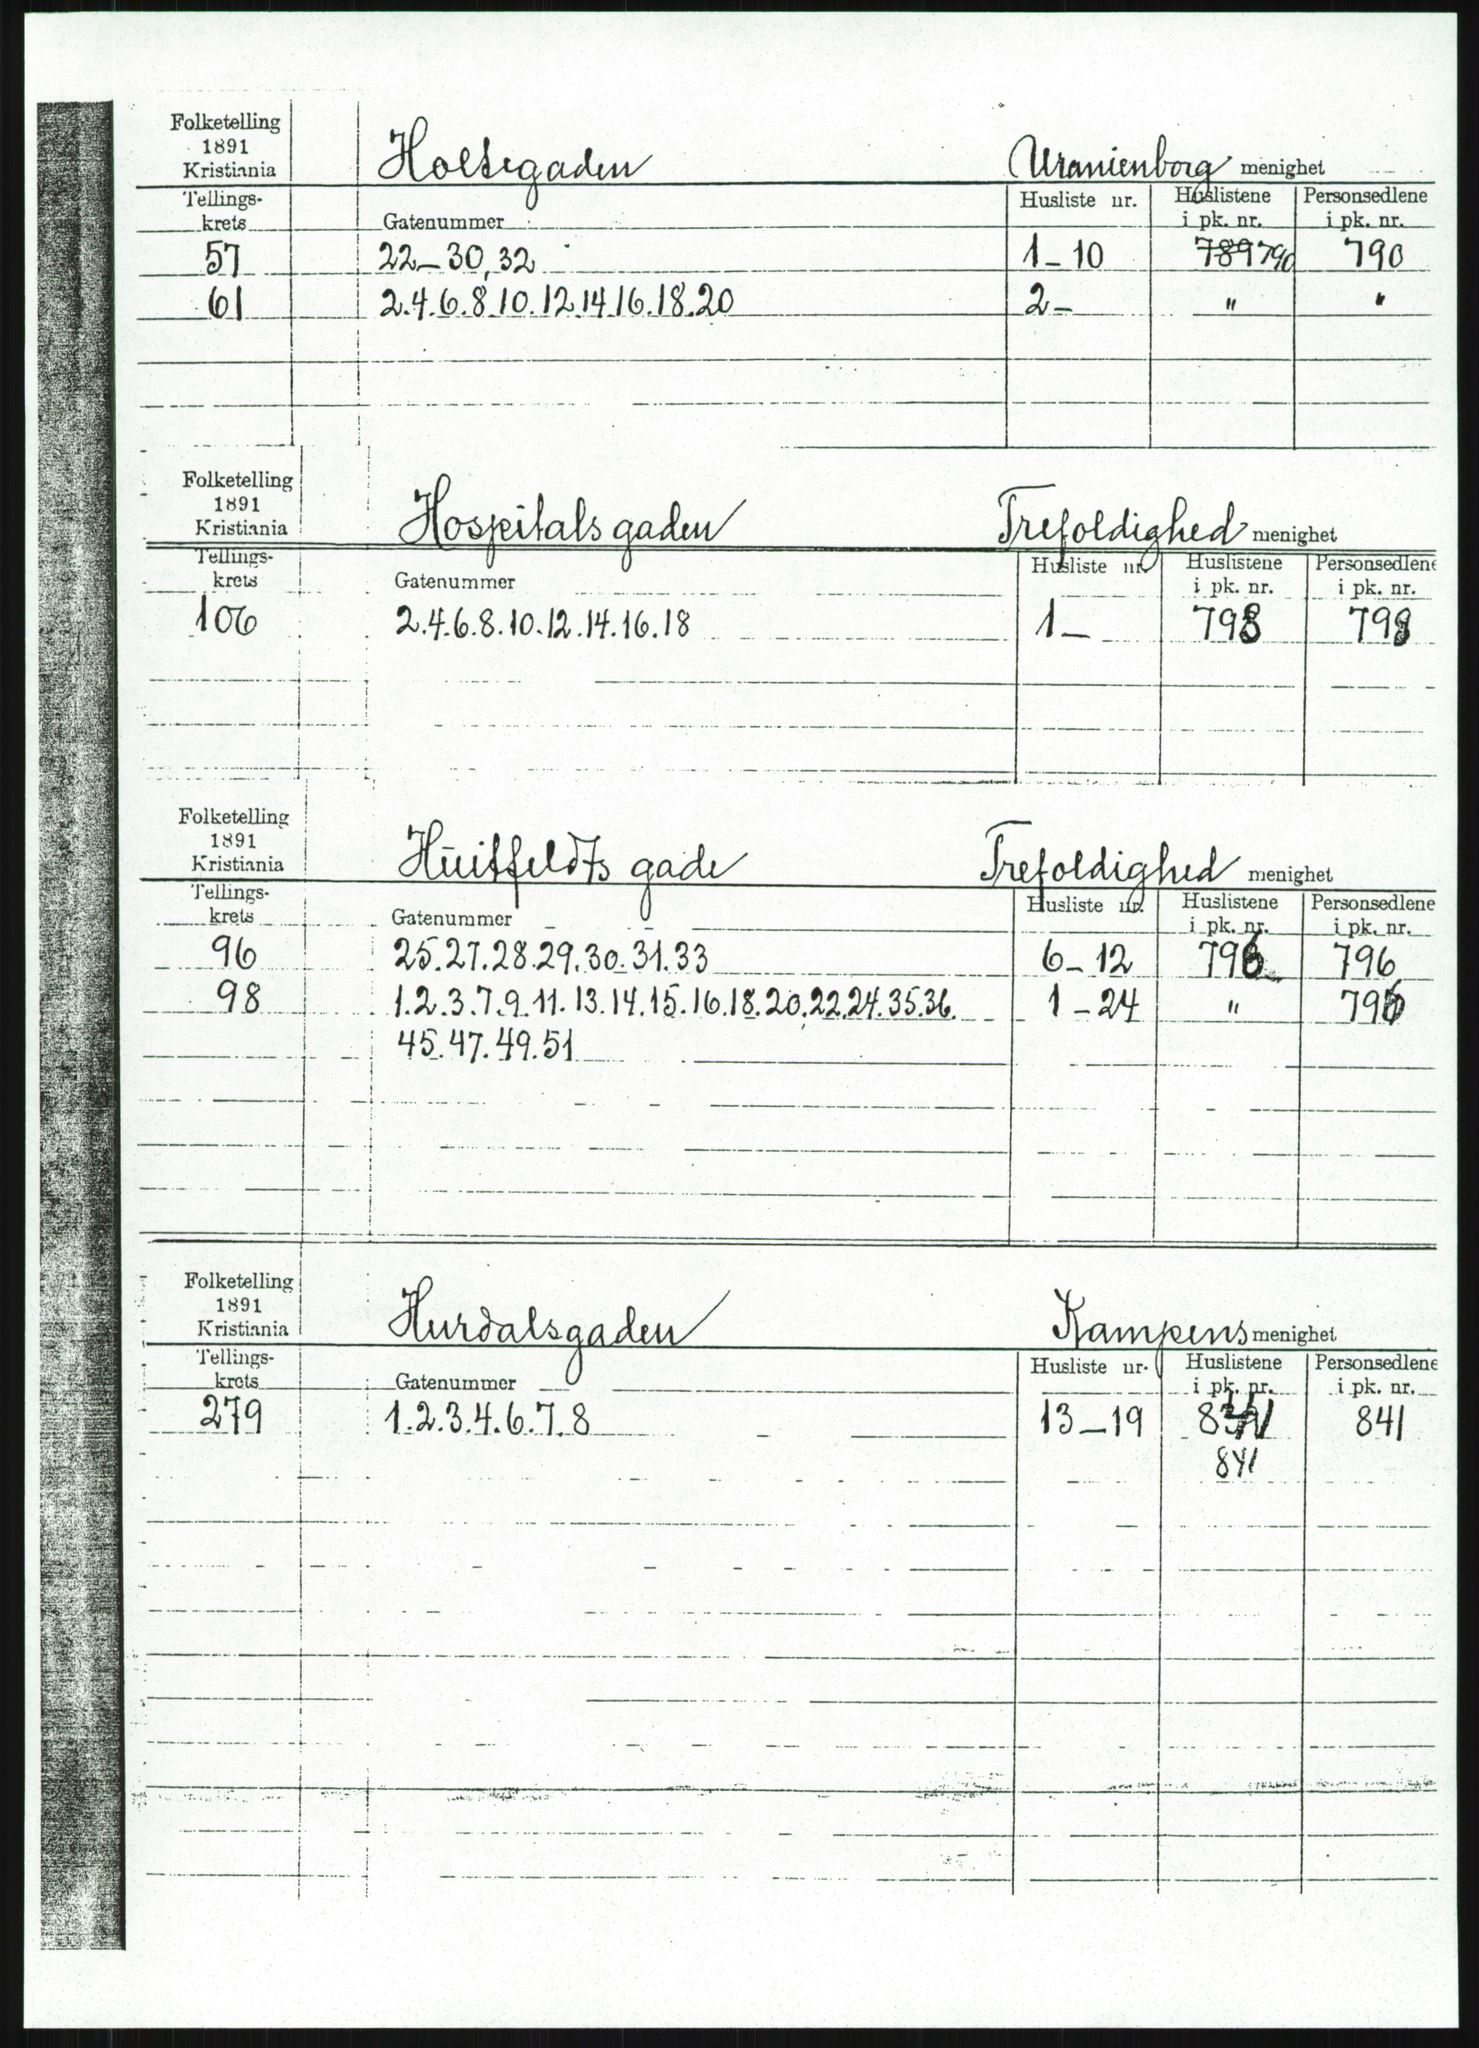 Folketelling
1891
Kristiania Holtegaden Uranienborg menighet
Tellings-krets Gatenummer Husliste nr. Huslistene i pk. nr. Personsedlene i pk. nr.
57 22-30,32 1-10 789 790 790
61 2.4.6.8.10.12.14.16.18.20 2- " "
Folketelling
1891
Kristiania Hospitalsgaden Trefoldighed menighet
Tellings-krets Gatenummer Husliste nr. Huslistene i pk. nr. Personsedlene i pk. nr.
106 2.4.6.8.10.12.14.16.18 1- 793 793
Folketelling
1891
Kristiania Huitfeldts gade Trefoldighed menighet
Tellings-krets Gatenummer Husliste nr. Huslistene i pk. nr. Personsedlene i pk. nr.
96 25.27.28.29.30.31.33 6-12 796 796
98 1.2.3.7.9.11.13.14.15.16.18.20.22.24.35.36. 1-24 " 796
45.47.49.51
Folketelling
1891
Kristiania Hurdalsgaden Kampens menighet
Tellings-krets Gatenummer Husliste nr. Huslistene i pk. nr. Personsedlene i pk. nr.
279 1.2.3.4.6.7.8 13-19 841
841